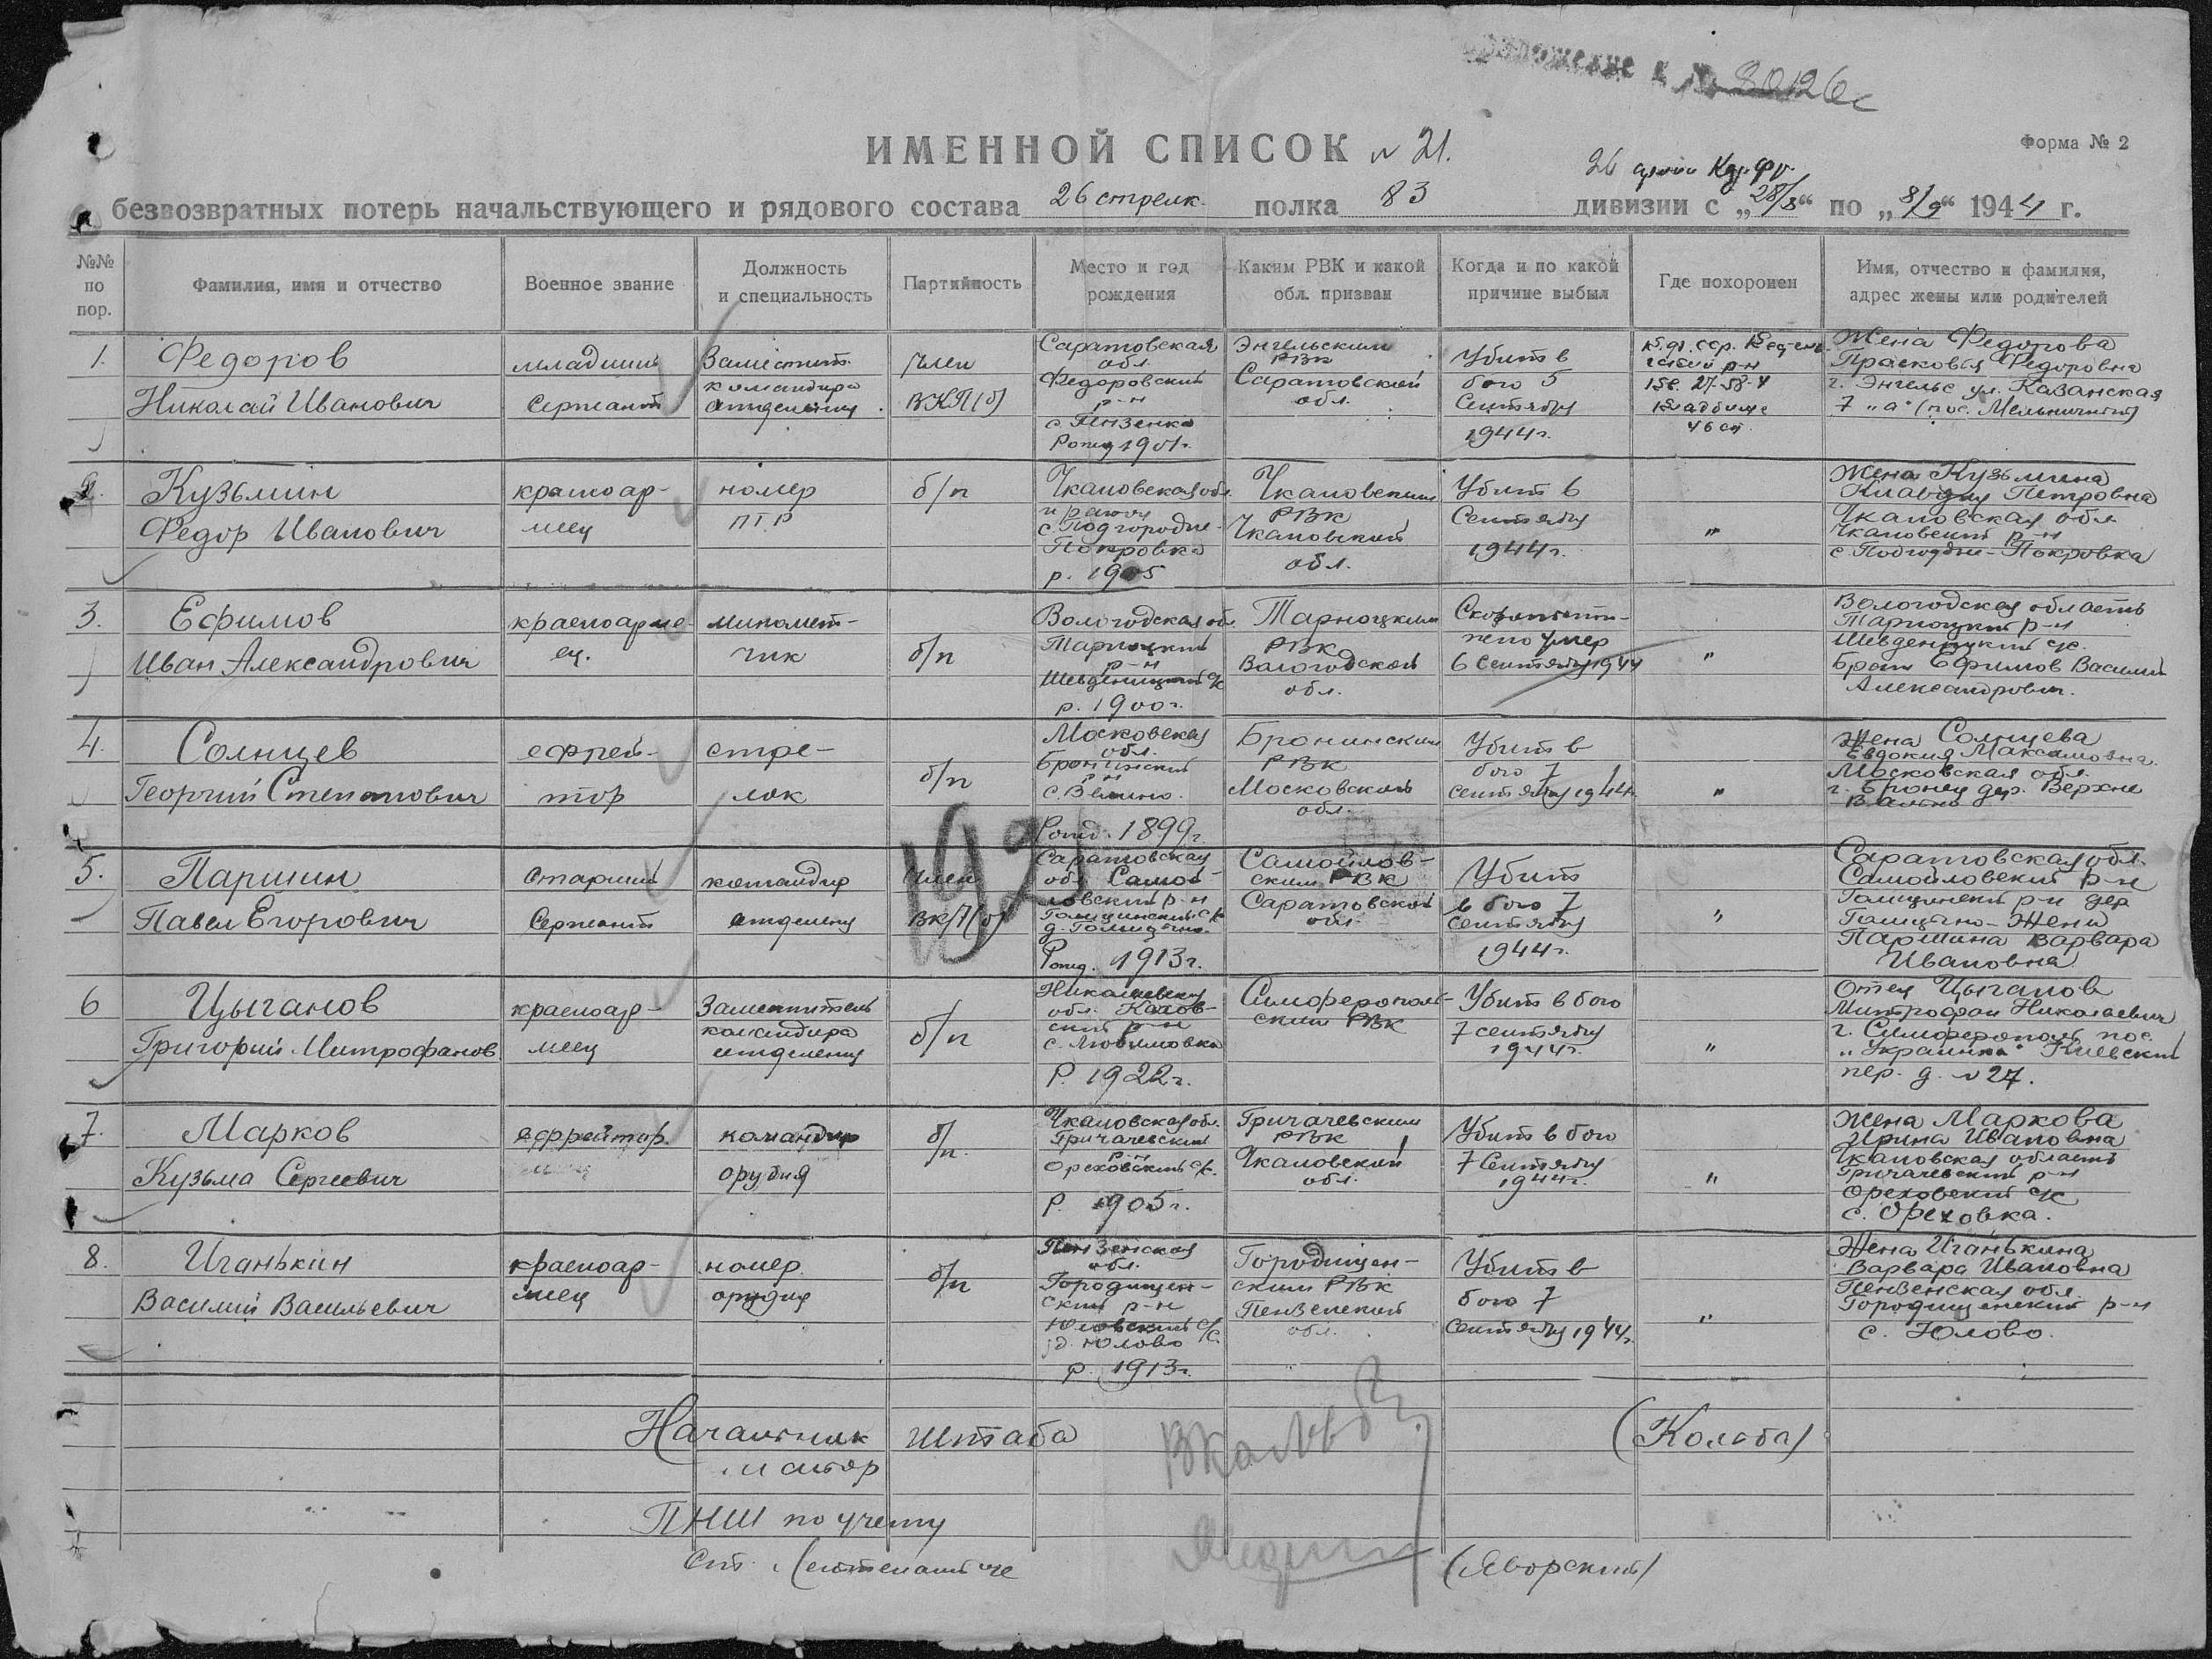 Приложение к № 8026с
ИМЕННОЙ СПИСОК № 21.
Форма № 2
26 армии Кар. фр.
безвозвратных потерь начальствующего и рядового состава 26 стрелк. полка 83 дивизии с „28/8“ по „8/9“ 1944 г.
№№ по пор.
Фамилия, имя и отчество
Военное звание
Должность и специальность
Партийность
Место и год рождения
Каким РВК и какой обл. призван
Когда и по какой причине выбыл
Где похоронен
Имя, отчество и фамилия, адрес жены или родителей
1.
Федоров
Николай Иванович
младший
Сержант
Заместит.
командира
отделения
член
ВКП(б)
Саратовская
обл.
Федоровский
р-н
с. Пензенка
Рожд 1901г.
Энгельским
РВК
Саратовской
обл.
Убит в
бою 5
Сентября
1944г.
К.Ф.ССР.
р-н
27-58-4
Кладбище
Жена Федорова
Прасковья Федоровна
г. Энгельс ул. Казанская
7 "а"
2.
Кузьмин
Федор Иванович
красноар-
меец
номер
ПТР
б/п
Чкаловская обл.
и району
с. Подгородне-
Покровка
р. 1905
Чкаловским
РВК
Чкаловской
обл.
Убит 6
Сентября
1944г.
"
Жена Кузьмина
Клавдия Петровна
Чкаловская обл
Чкаловский р-н
с. Подгодне-Покровка
3.
Ефимов
Иван Александрович
красноарме-
ец.
миномет-
чик
б/п
Вологодская обл
Тарногский
р-н
Шевденицкий с/с
р. 1900г.
Тарногским
РВК
Вологодской
обл.
Скоропости-
жно умер
6 Сентября 1944
"
Вологодская область
Тарногский р-н
Шевденицкий с/с.
Брат Ефимов Василий
Александрович.
4.
Солнцев
Георгий Степанович
ефрей-
тор
стре-
лок
б/п
Московская
обл.
Бронницкий
р-н
с. Велино.
Рожд. 1899г.
Бронницким
РВК
Московской
обл.
Убит в
бою 7
сентября 1944г.
"
Жена Солнцева
Евдокия Максимовна.
Московская обл.
г. Бронец дер. Верхне
Велино
5.
Паршин
Павел Егорович
Старший
Сержант
командир
отделения
член
ВКП(б)
1921
Саратовская
обл. Самой-
ловский р-н
Голицинский с/с
д. Голицыно.
Рожд. 1913г.
Самойлов-
ским РВК
Саратовской
обл.
Убит
в бою 7
Сентября
1944г.
"
Саратовская обл.
Самойловский р-н
Голицинский р-н дер
Голицыно - Жена
Паршина Варвара
Ивановна
6
Цыганов
Григорий Митрофанов
красноар-
меец
Заместитель
командира
отделения
б/п
Николаевская
обл. Кахов-
ский р-н
с. Любимовка
Р. 1922г.
Симферополь-
ским РВК
Убит в бою
7 сентября
1944г.
"
Отец Цыганов
Митрофан Николаевич
г. Симферополь пос.
"Украинка" Киевский
пер. д. № 27.
7.
Марков
Кузьма Сергеевич
ефрейтор
командир
орудия
б/п.
Чкаловская обл.
Грачачевский
р-н
Ореховский с/с.
Р. 1905г.
Грачачевским
РВК
Чкаловской
обл.
Убит в бою
7 Сентября
1944г.
"
Жена Маркова
Ирина Ивановна
Чкаловская область
Грачачевский р-н
Ореховский с/с
с. Ореховка.
8.
Иганькин
Василий Васильевич
красноар-
меец
номер
орудия
б/п
Пензенская
обл.
Городищен-
ский р-н
Юловский с/с.
д. Юлово
р. 1913г.
Городищен-
ским РВК
Пензенской
обл.
Убит в
бою 7
Сентября 1944г.
"
Жена Иганькина
Варвара Ивановна
Пензенская обл.
Городищенский р-н
с. Юлово.
Начальник штаба
майор
(Кольба)
ПНШ по учету
Ст. Лейтенант
(Яворский)